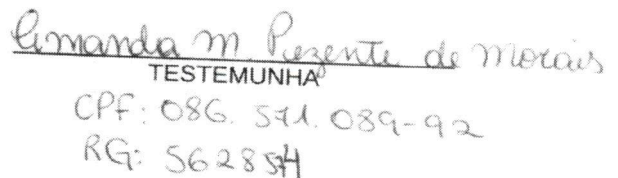 Amanda M. Pezente de Morais
TESTEMUNHA
CPF: 086.571.089-92
RG: 5628574